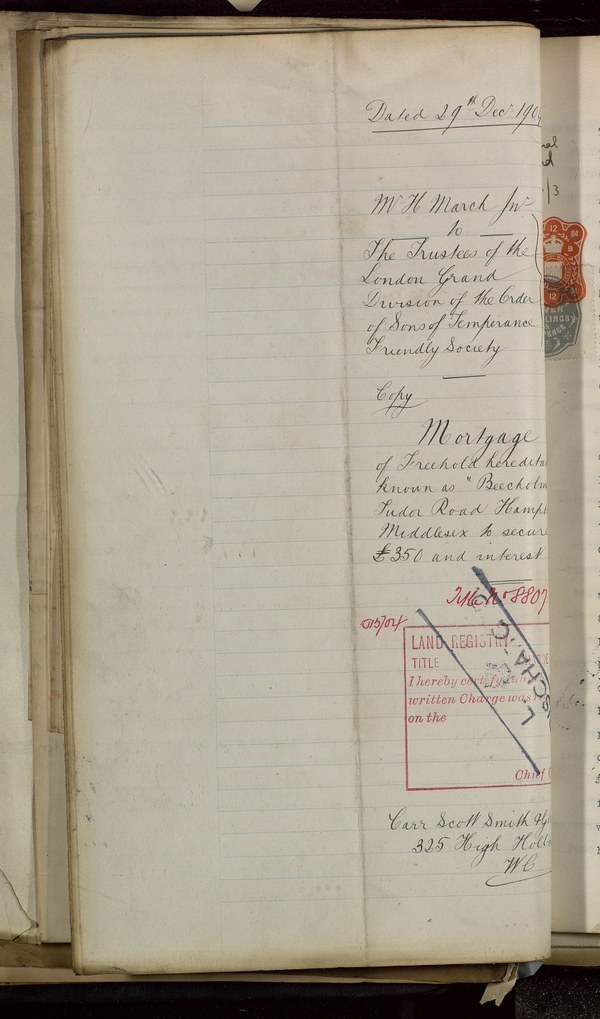 Dated 29th Decr 190
Mr H March Jnr
to
The Trustees of the
London Grand
Division of the Order
of Sons of Temperance
Friendly Society
Copy
Mortgage
of Freehold heredita
known as "Beecholm
Tudor Road Hamp
Middlesex to secure
£350 and interest
Title No 8807
LAND REGISTRY
TITLE
I hereby certify
written Charge was
on the
Chief
Carr Scott Smith &
325 High Holb
W C